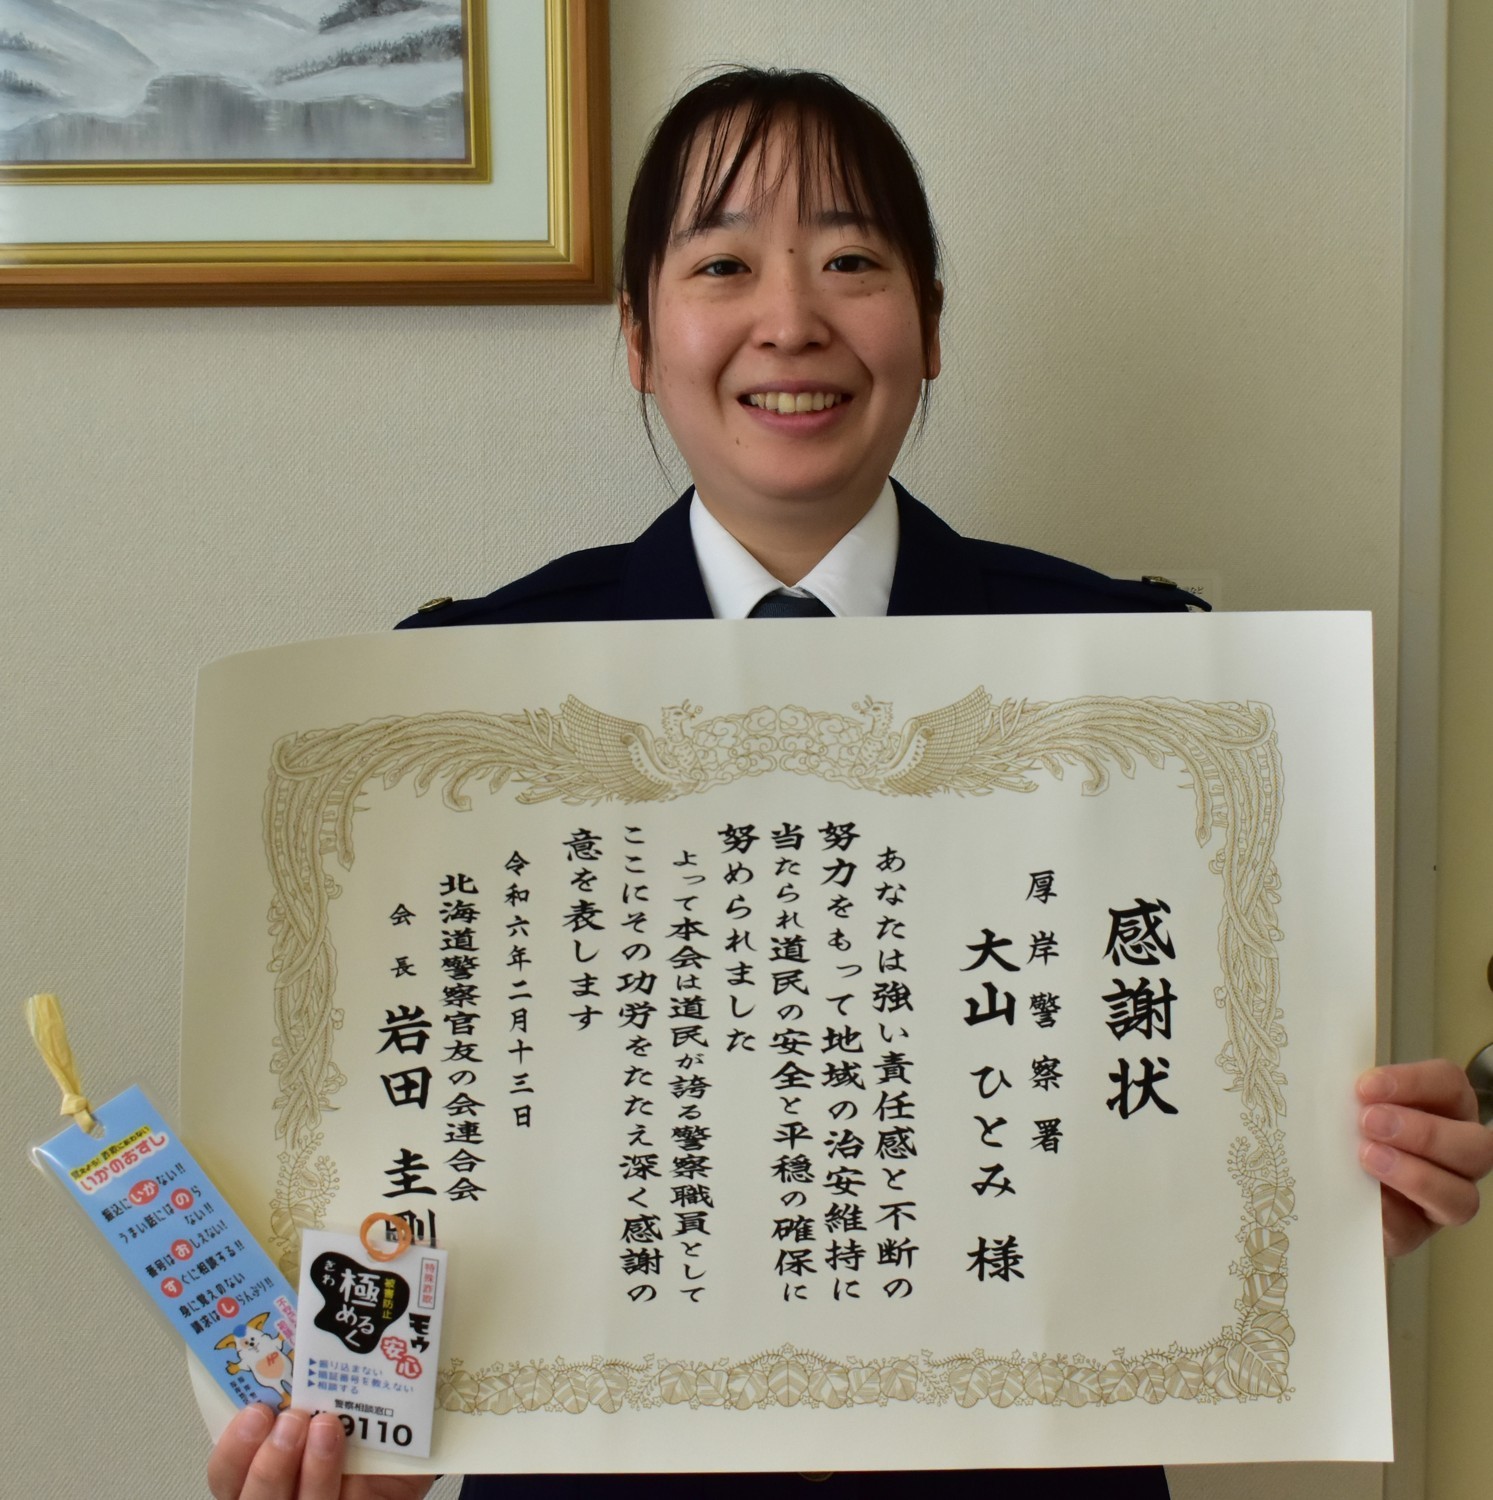 感謝状
厚岸警察署
大山ひとみ 様
あなたは強い責任感と不断の
努力をもって地域の治安維持に
当たられ道民の安全と平穏の確保に
努められました
よって本会は道民が誇る警察職員として
ここにその功労をたたえ深く感謝の
意を表します
令和六年二月十三日
北海道警察官友の会連合会
会長 岩田 圭剛
いかのおすし
振込にいかない!!
うまい話にはのらない!!
番号はおしえない!
すぐに相談する!!
身に覚えのない
請求はしらんぷり!!
特殊詐欺
被害防止
極める
きわ
モウ
安心
▶振り込まない
▶暗証番号を教えない
▶相談する
警察相談窓口
9110